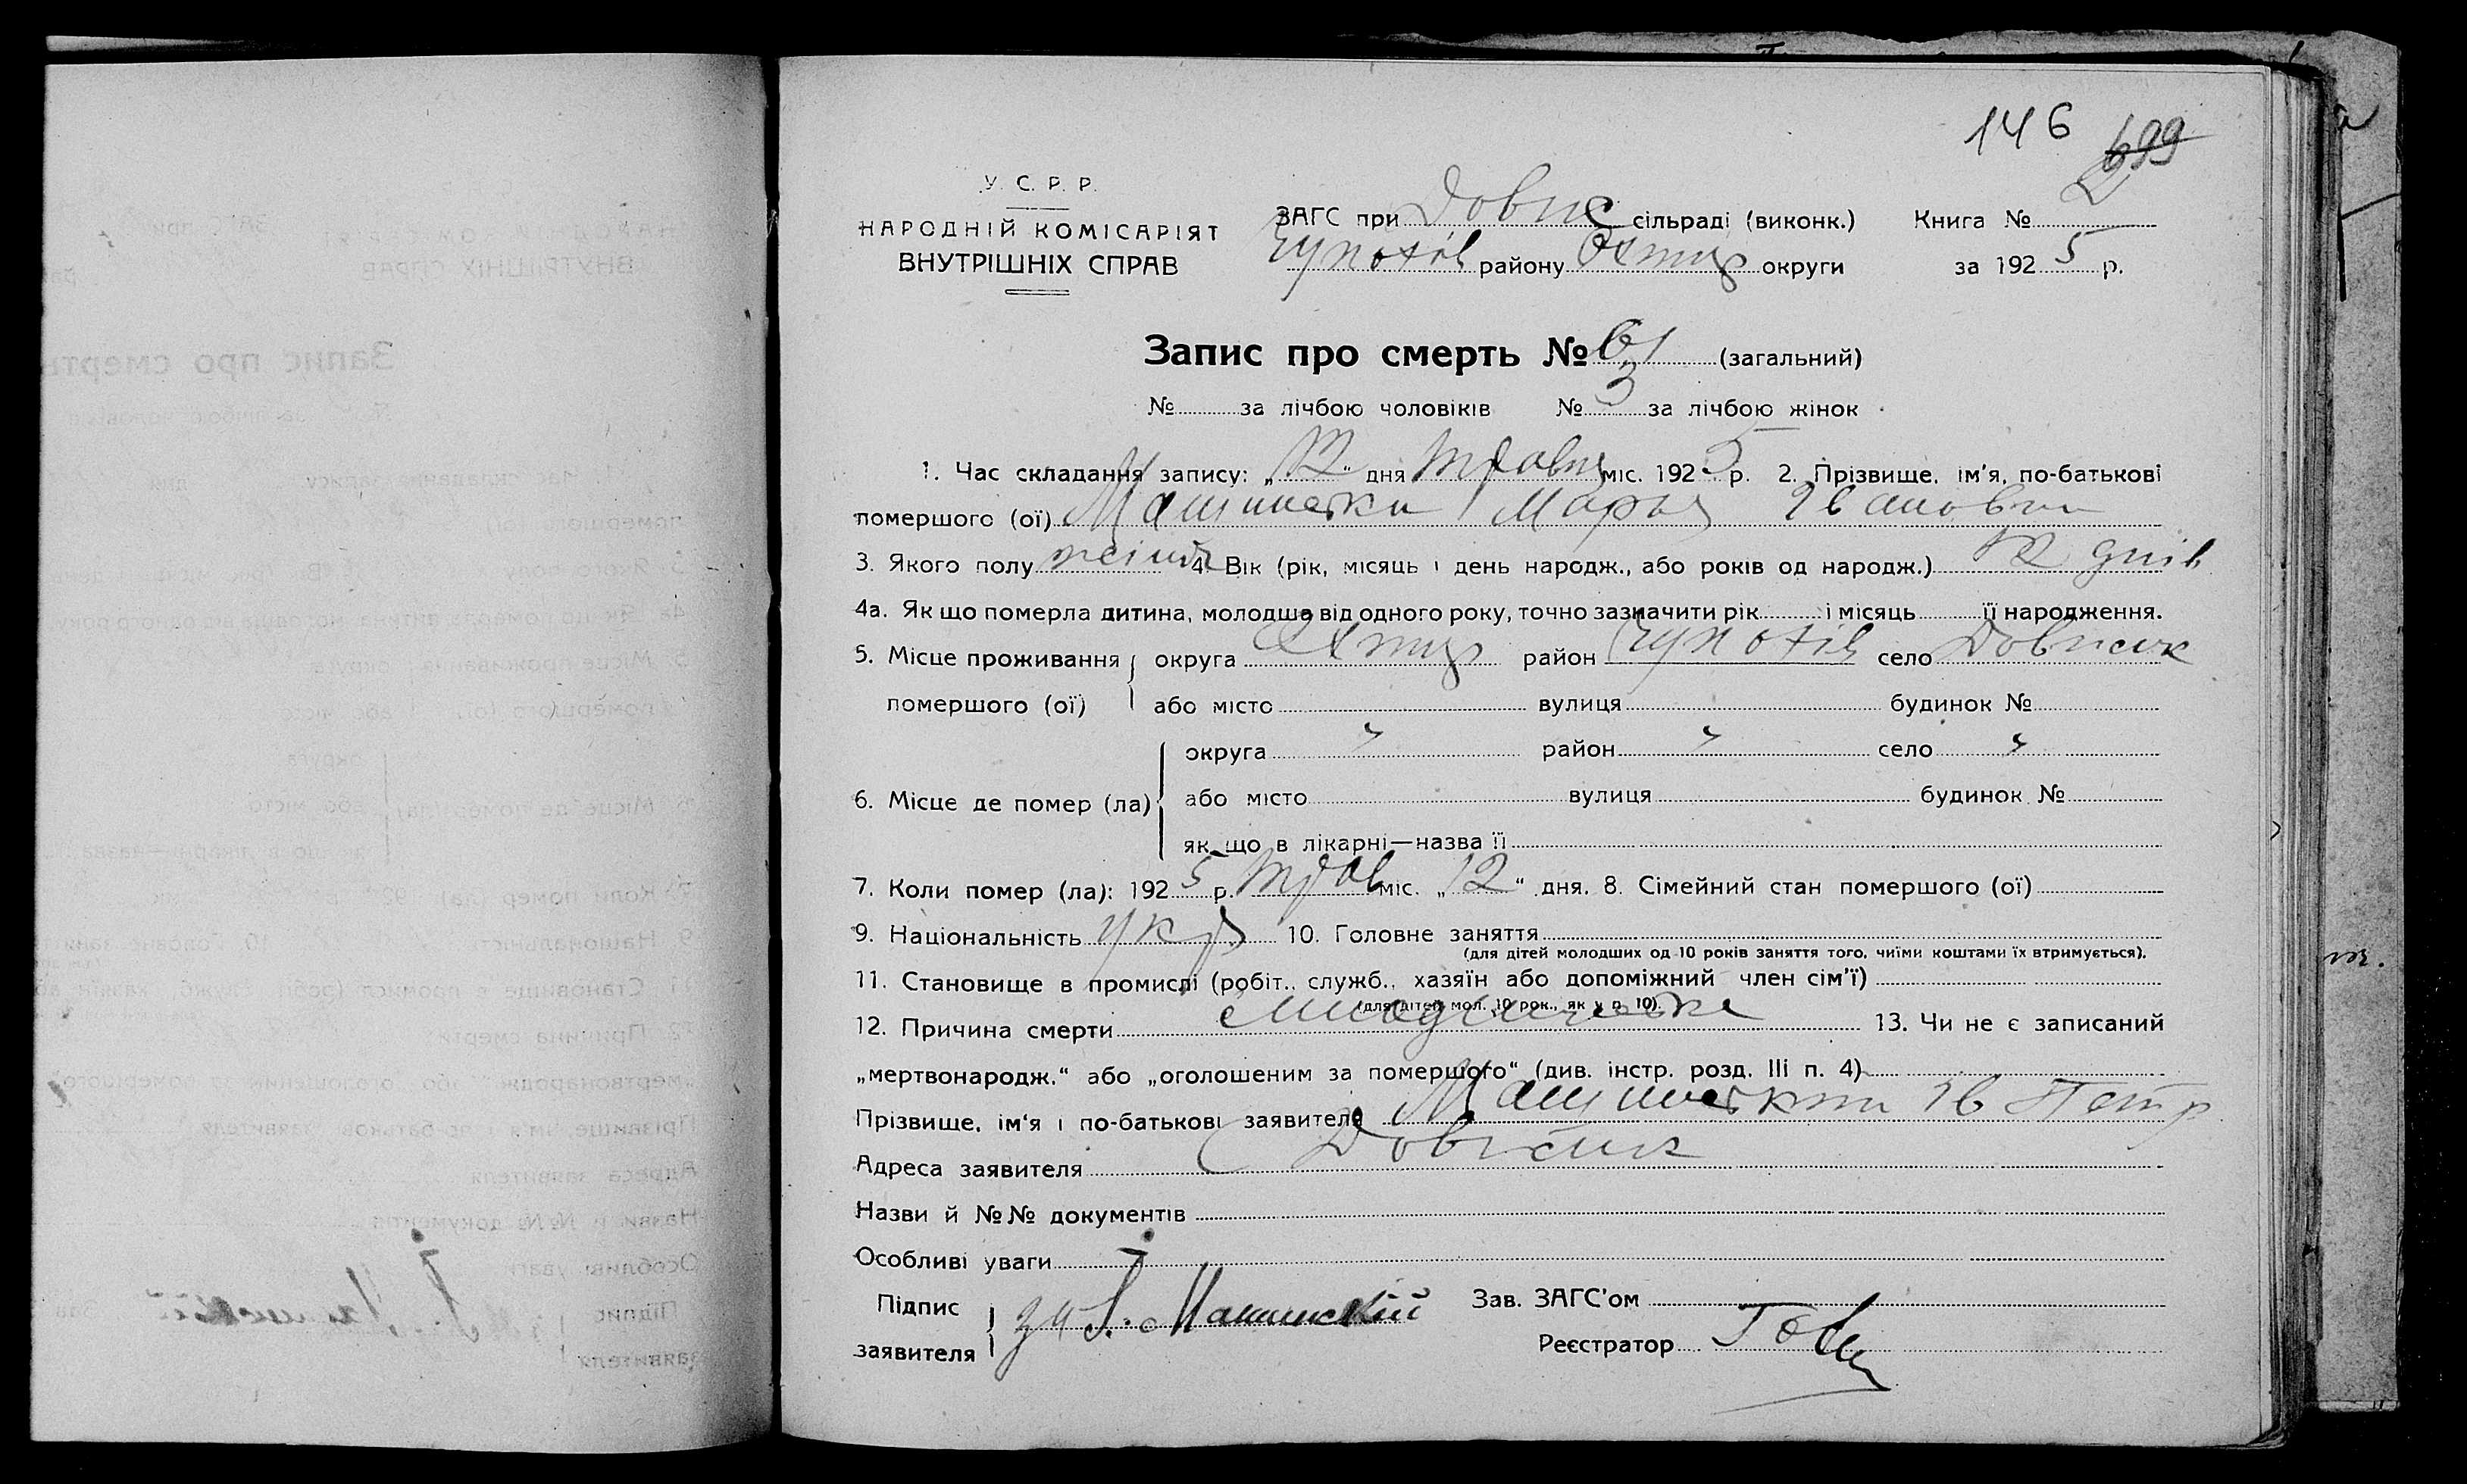 146 699
У. С. Р. Р.
НАРОДНІЙ КОМІСАРІЯТ
ВНУТРІШНІХ СПРАВ
ЗАГС при Довж сільраді (виконк.) Книга № 2
району Охтир округи за 192 5 р.
Запис про смерть № 61 (загальний)
№ за лічбою чоловіків № 3 за лічбою жінок
1. Час складання запису: „12“ дня Травня міс. 192 5 р. 2. Прізвище, ім'я, по-батькові
помершого (ої) Марья Ивановна
3. Якого полу жіноч 4. Вік (рік, місяць і день народж., або років од народж.) 12 днів
4а. Як що померла дитина, молодша від одного року, точно зазначити рік і місяць її народження.
5. Місце проживання округа Охтир район село Довжик
помершого (ої) або місто вулиця будинок №
округа " район " село "
6. Місце де помер (ла) або місто вулиця будинок №
як що в лікарні—назва її
7. Коли помер (ла): 192 5 р. Трав міс. „12“ дня. 8. Сімейний стан помершого (ої)
9. Національність укр 10. Головне заняття
(для дітей молодших од 10 років заняття того, чиїми коштами їх втримується).
11. Становище в промислі (робіт., служб., хазяїн або допоміжний член сім'ї)
(для дітей мол. 10 рок., як у п. 10).
12. Причина смерти 13. Чи не є записаний
„мертвонародж.“ або „оголошеним за помершого“ (див. інстр. розд. III п. 4)
Прізвище, ім'я і по-батькові заявителя Ів Петр
Адреса заявителя С Довжик
Назви й №№ документів
Особливі уваги
Підпис
заявителя
Зав. ЗАГС'ом
Реєстратор